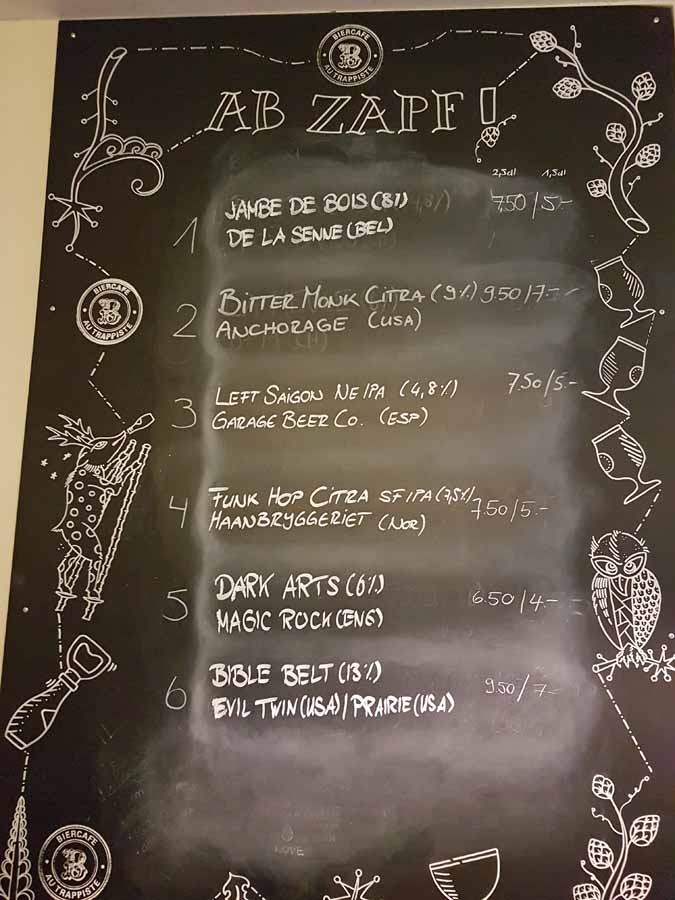 BIERCAFE
B
AU TRAPPISTE
AB ZAPF!
2,5dl 1,5dl
1 JAMBE DE BOIS (8%) 7.50/5.-
DE LA SENNE (BEL)
BIERCAFE
B
AU TRAPPISTE
2 BITTER MONK CITRA (9%) 9.50/7.-
ANCHORAGE (USA)
3 LEFT SAIGON NEIPA (4,8%) 7.50/5.-
GARAGE BEER CO. (ESP)
4 FUNK HOP CITRA SFIPA (7,5%) 7.50/5.-
HAANBRYGGERIET (NOR)
5 DARK ARTS (6%) 6.50/4.-
MAGIC ROCK (ENG)
6 BIBLE BELT (13%) 9.50/7.-
EVIL TWIN (USA) / PRAIRIE (USA)
BIERCAFE
B
AU TRAPPISTE